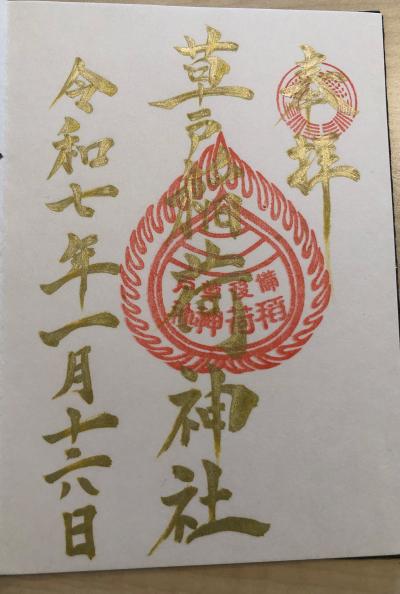 奉拝
草戸稲荷神社
令和七年一月十六日
稲荷神社